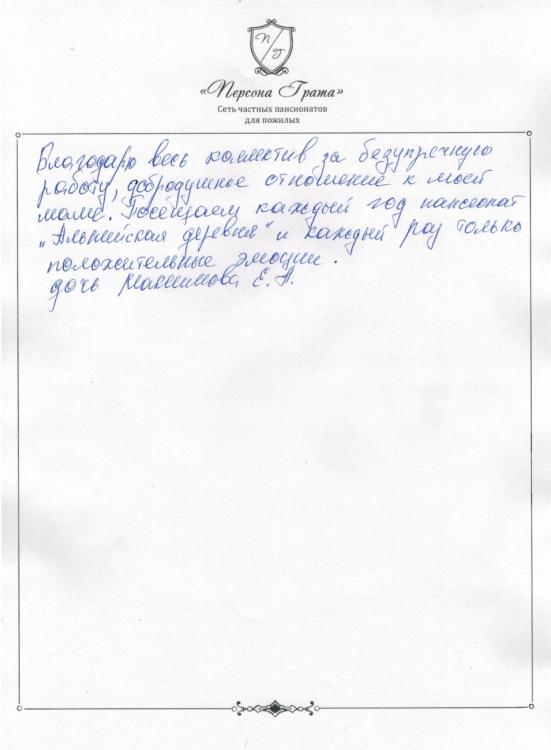 П/Г
«Персона Грата»
Сеть частных пансионатов
для пожилых
Благодарю весь коллектив за безупречную
работу, добродушное отношение к моей
маме. Посещаем каждый год пансионат
"Альпийская деревня" и каждый раз только
положительные эмоции.
дочь Максимова Е. А.